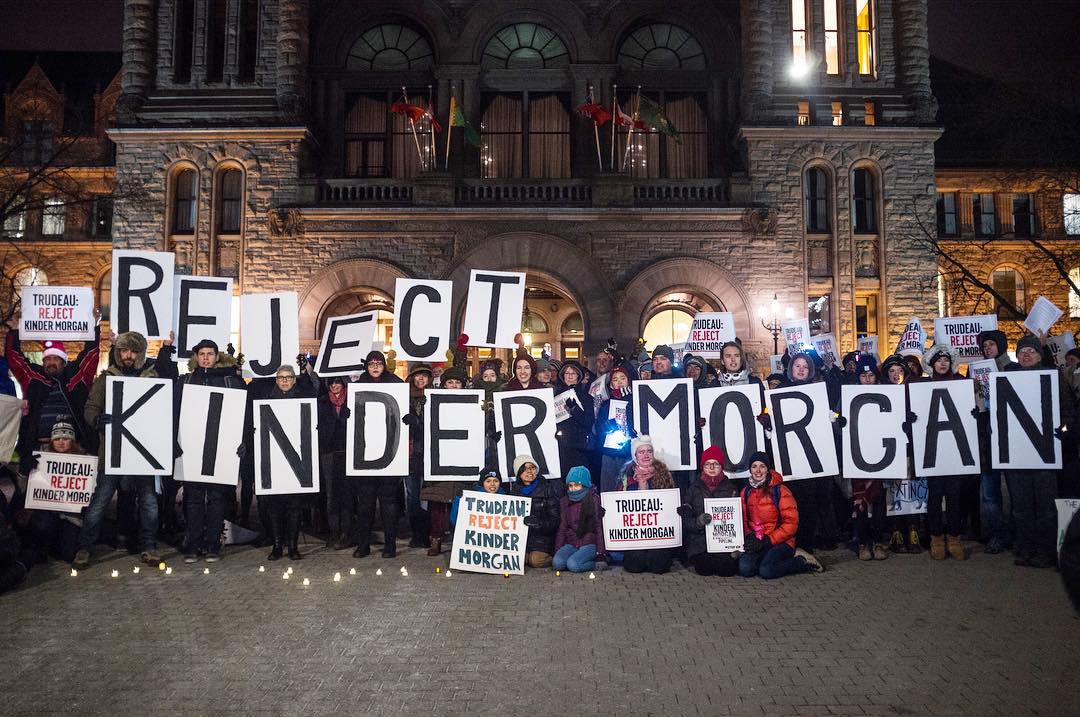 REJECT
KINDER MORGAN
TRUDEAU:
REJECT
KINDER MORGAN
TRUDEAU:
REJECT
KINDER MORGAN
TRUDEAU:
REJECT
KINDER MORGAN
TRUDEAU:
REJECT
KINDER MORGAN
TRUDEAU:
REJECT
KINDER
MORGAN
TRUDEAU:
REJECT
KINDER MORGAN
TRUDEAU:
REJECT
THE
KINDER
MORGAN
PIPELINE